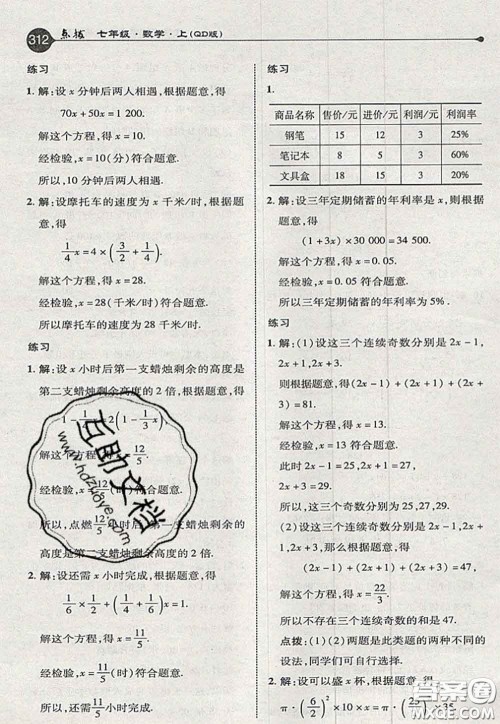 312 点拨 七年级·数学·上(QD版)
练习
1. 解:设 x 分钟后两人相遇,根据题意,得
70x+50x=1 200.
解这个方程,得 x=10.
经检验,x=10(分)符合题意.
所以,10 分钟后两人相遇.
2. 解:设摩托车的速度为 x 千米/时,根据题
意,得
1/4 x=4×(3/2+1/4)
解这个方程,得 x=28.
经检验,x=28(千米/时)符合题意.
所以摩托车的速度为 28 千米/时.
练习
1. 解:设 x 小时后第一支蜡烛剩余的高度是
第二支蜡烛剩余高度的 2 倍,根据题意,得
2(1-1/3 x).
解这个方程 12/5.
经检验 12/5 符合题意.
所以,点燃 12/5 小时后第一支蜡烛剩余的
高度是第二支蜡烛剩余高度的 2 倍.
2. 解:设还需 x 小时完成,根据题意,得
1/6×1/2+(1/6+1/4)x=1.
解这个方程,得 x=11/5.
经检验,x=11/5(时)符合题意.
所以,还需 11/5 小时完成.
练习
1.
商品名称 售价/元 进价/元 利润/元 利润率
钢笔 15 12 3 25%
笔记本 8 5 3 60%
文具盒 18 15 3 20%
2. 解:设三年定期储蓄的年利率是 x,则根据
题意,得
(1+3x)×30 000=34 500.
解这个方程,得 x=0.05.
经检验,x=0.05 符合题意.
所以三年定期储蓄的年利率为 5%.
练习
1. 解:(1)设这三个连续奇数分别是 2x-1,
2x+1,2x+3.
则根据题意,得 (2x-1)+(2x+1)+(2x
+3)=81.
解这个方程,得 x=13.
经检验,x=13 符合题意.
此时 2x-1=25,2x+1=27,2x+3
=29.
所以,这三个奇数分别为 25,27,29.
(2)设这三个连续奇数分别是 2x-1,2x+
1,2x+3,那么根据题意,得
(2x-1)+(2x+1)+(2x+3)=47,
解这个方程,得 x=22/3.
所以不存在三个连续奇数的和是 47.
点拨:(1)(2)两题是此类题的两种不同的
设法,同学们可自行选择.
2. 解:设可以盛 x 杯,根据题意,得
π·(6/2)²×10×x=π·
互助文档
www.hdzuoye.com
答案圈
MXQE.COM